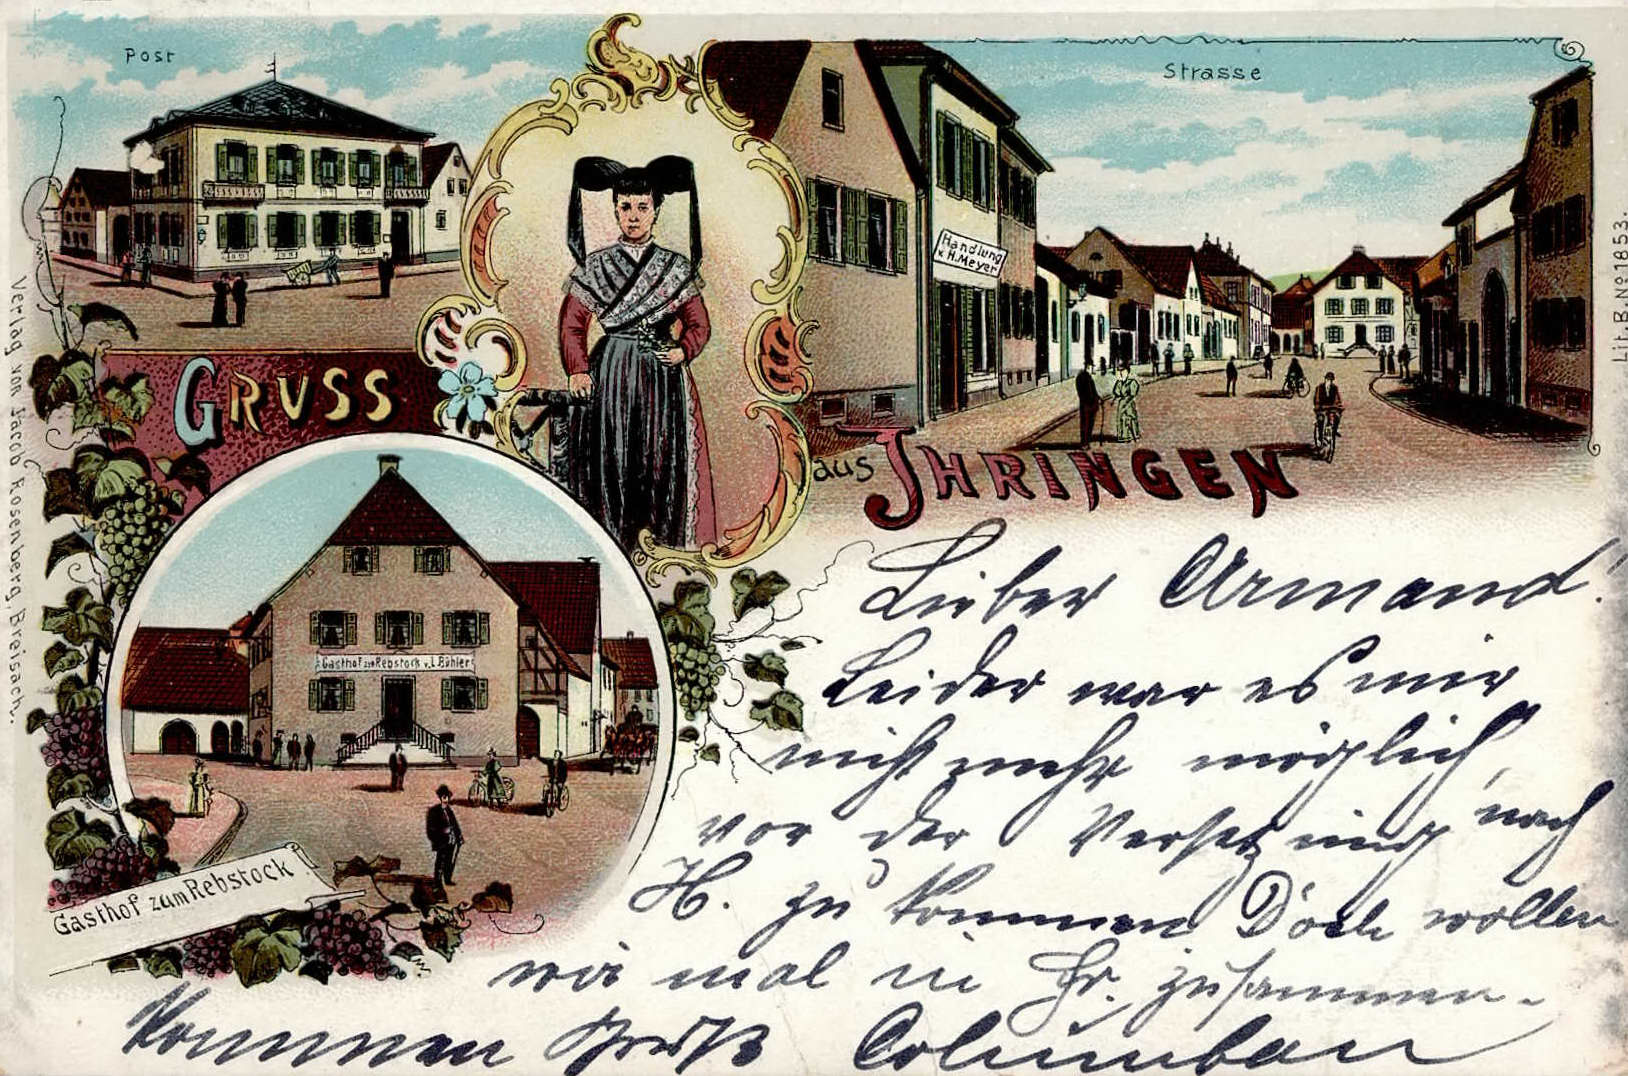 Post
Strasse
Handlung
v. H. Meyer
GRUSS
aus IHRINGEN
Gasthof zum Rebstock v. L. Bühler
Gasthof zum Rebstock.
Verlag von Jacob Rosenberg, Breisach.
Lit. B. No 1853.
Lieber Armand!
Leider war es mir
nicht mehr möglich,
vor der Versetzung nach
H. zu kommen Doch wollen
wir mal in Fr. zusammen-
kommen Gruß Columban